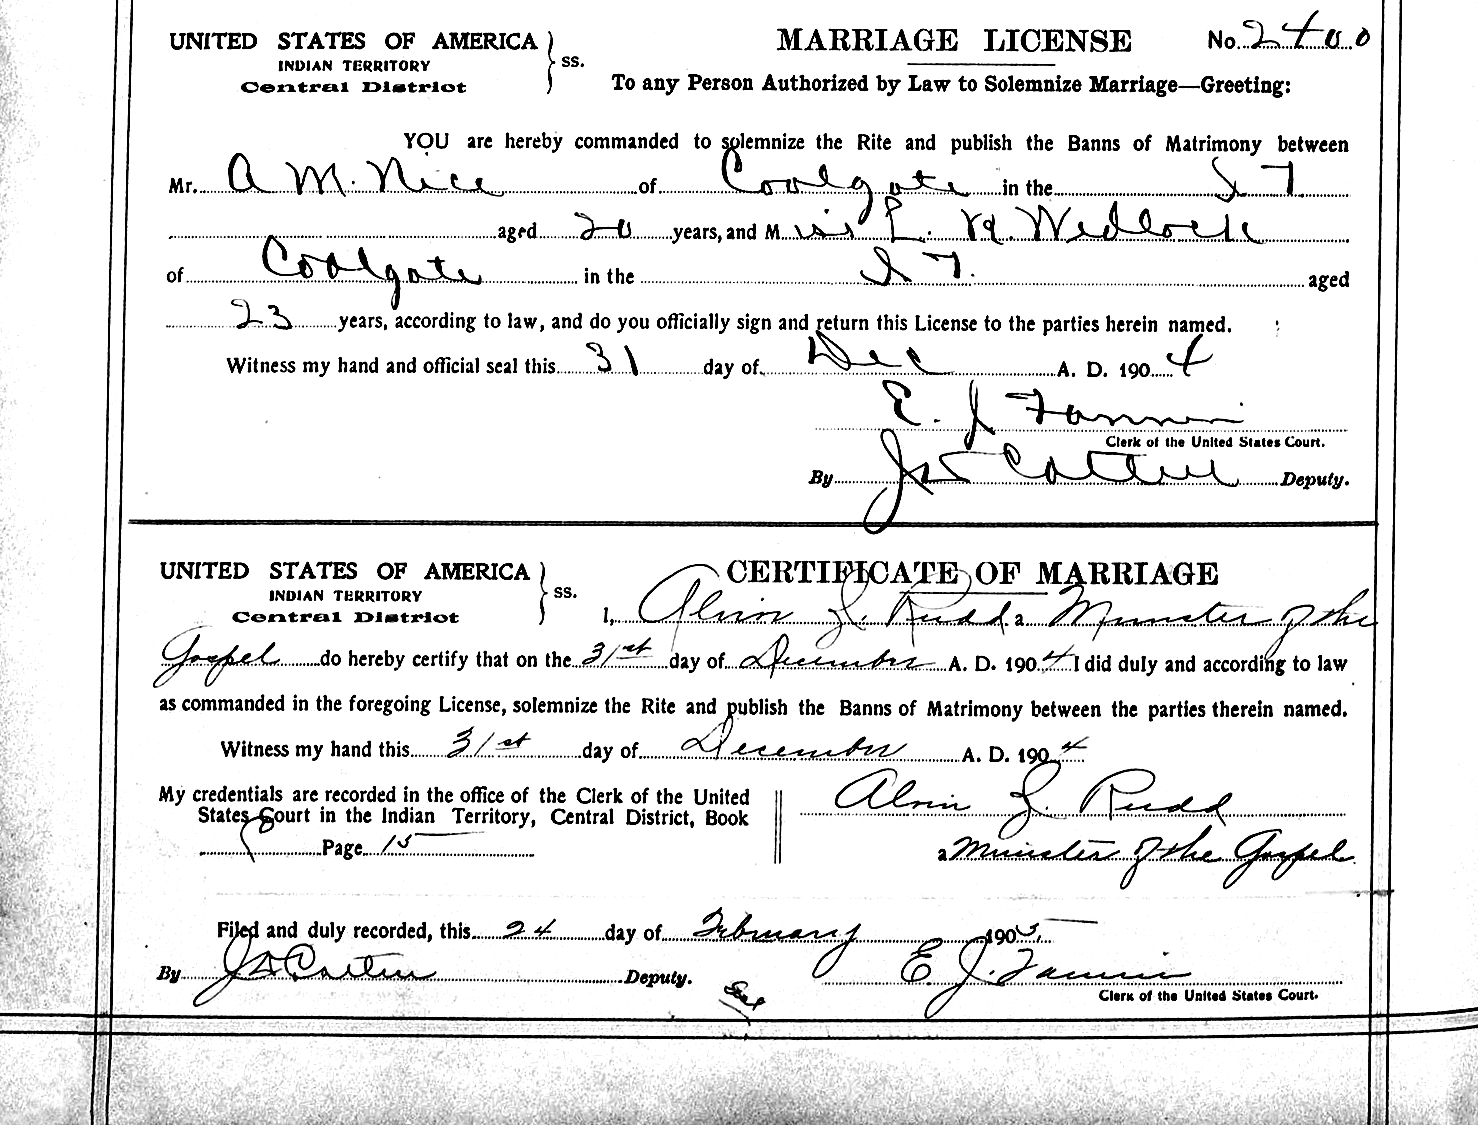 UNITED STATES OF AMERICA
INDIAN TERRITORY
Central District
ss.
MARRIAGE LICENSE
No. 2400
To any Person Authorized by Law to Solemnize Marriage—Greeting:
YOU are hereby commanded to solemnize the Rite and publish the Banns of Matrimony between
Mr. A M. Nice of Coalgate in the I T
aged 20 years, and Miss L. M. Wedlock
of Coalgate in the I T. aged
23 years, according to law, and do you officially sign and return this License to the parties herein named.
Witness my hand and official seal this 31 day of Dec A. D. 1904
E. J Fannin
Clerk of the United States Court.
By Deputy.
UNITED STATES OF AMERICA
INDIAN TERRITORY
Central District
ss.
CERTIFICATE OF MARRIAGE
I, Alvin L. Rudd a Minister of the
Gospel do hereby certify that on the 31st day of December A. D. 1904 I did duly and according to law
as commanded in the foregoing License, solemnize the Rite and publish the Banns of Matrimony between the parties therein named.
Witness my hand this 31st day of December A. D. 1904
My credentials are recorded in the office of the Clerk of the United
States Court in the Indian Territory, Central District, Book
Page 15
Alvin L. Rudd
a Minister of the Gospel
Filed and duly recorded, this 24 day of February 1905.
By Deputy.
E. J. Fannin
Clerk of the United States Court.
Seal